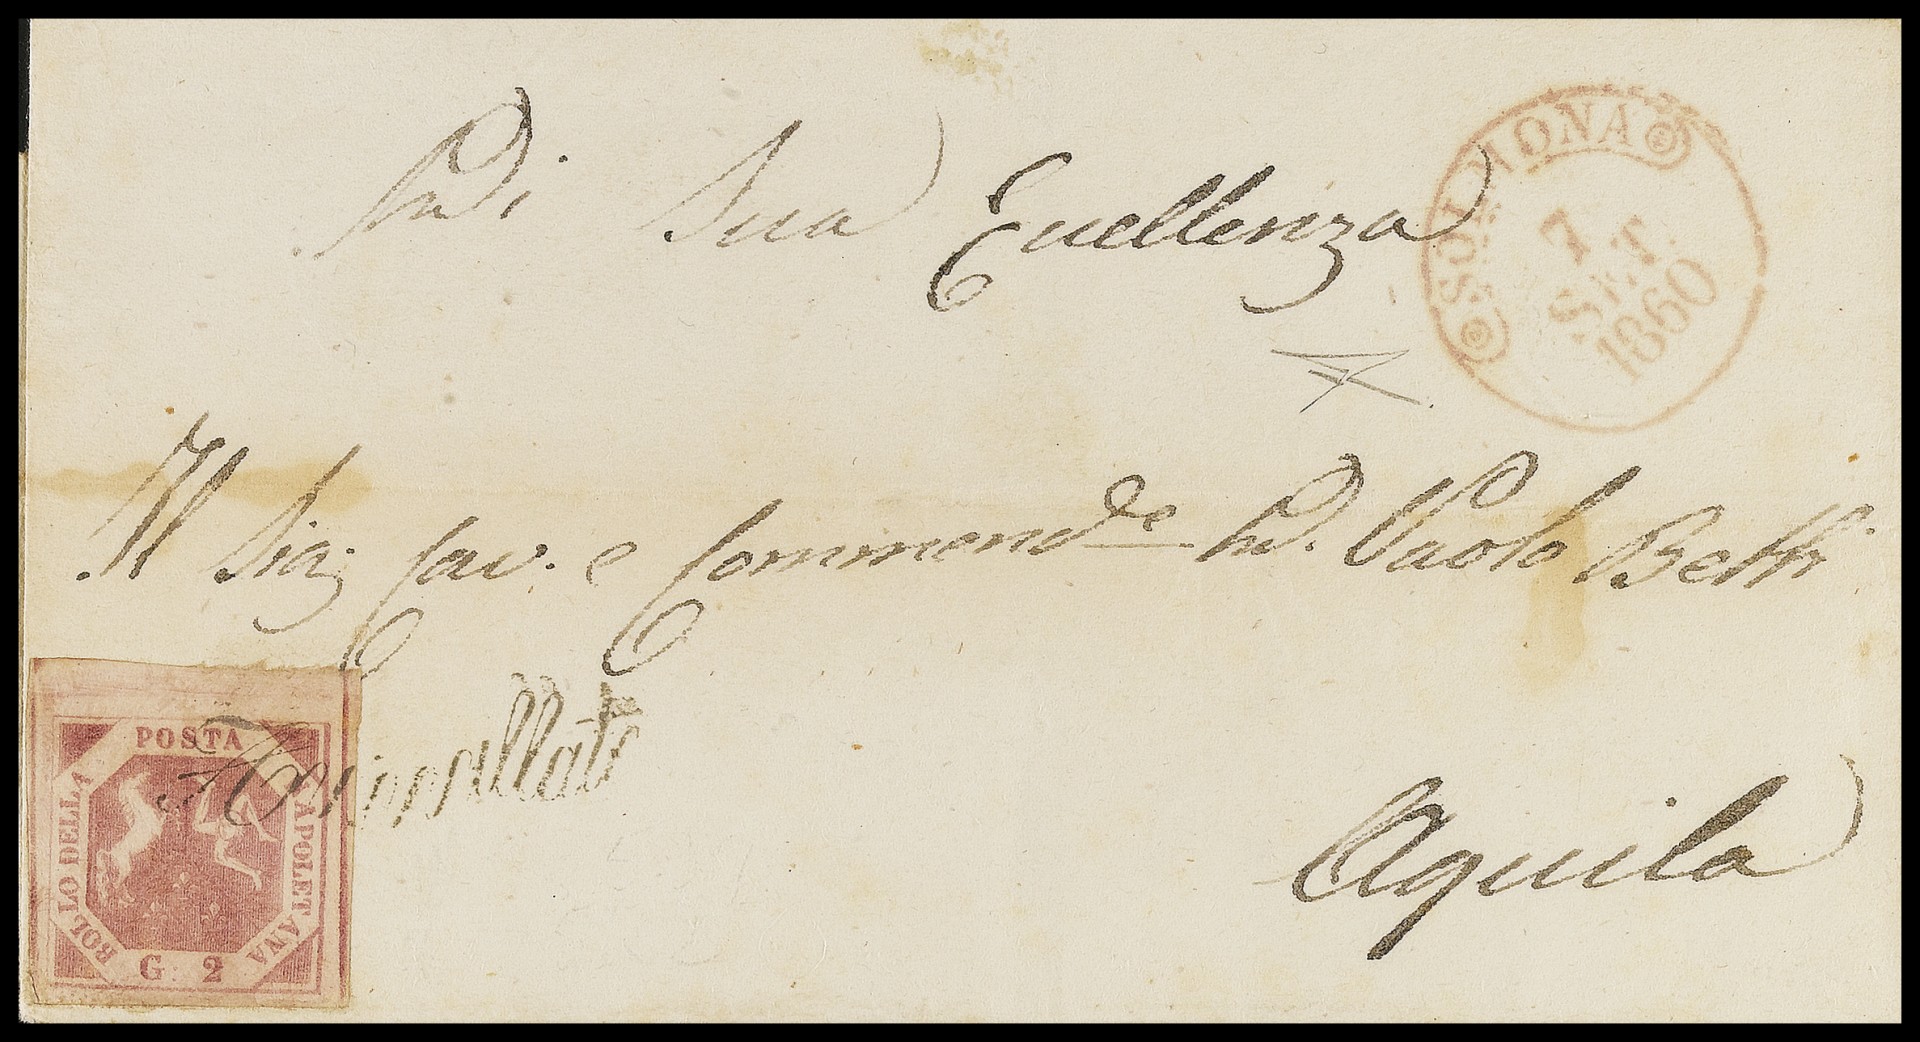 Di Sua Eccellenza
SOLMONA
7
SET.
1860
Il Sig: Cav. e Commend.e D. Paolo Betti
Annullato
POSTA
BOLLO DELLA
NAPOLETANA
G. 2
Aquila